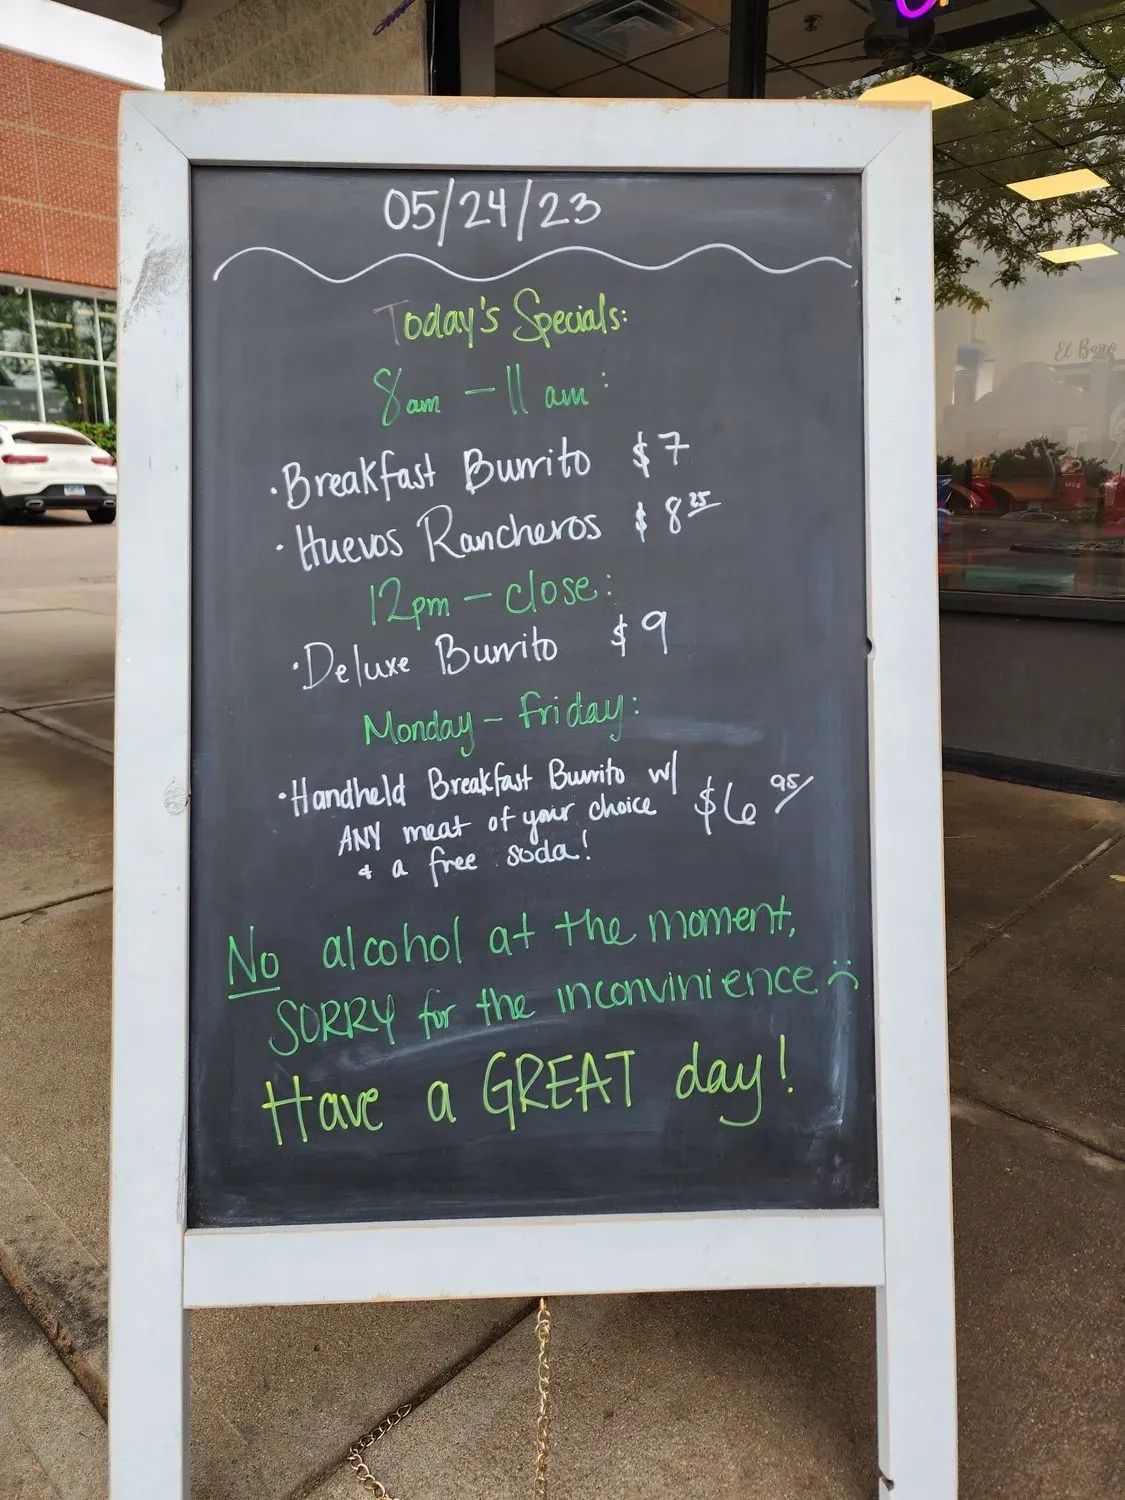 05/24/23
Today's Specials:
8am - 11 am:
· Breakfast Burrito $7
· Huevos Rancheros $8 25
12pm - close:
· Deluxe Burrito $9
Monday - Friday:
· Handheld Breakfast Burrito w/
ANY meat of your choice $6 95/
& a free soda!
No alcohol at the moment,
SORRY for the inconvinience :(
Have a GREAT day!
El Baño